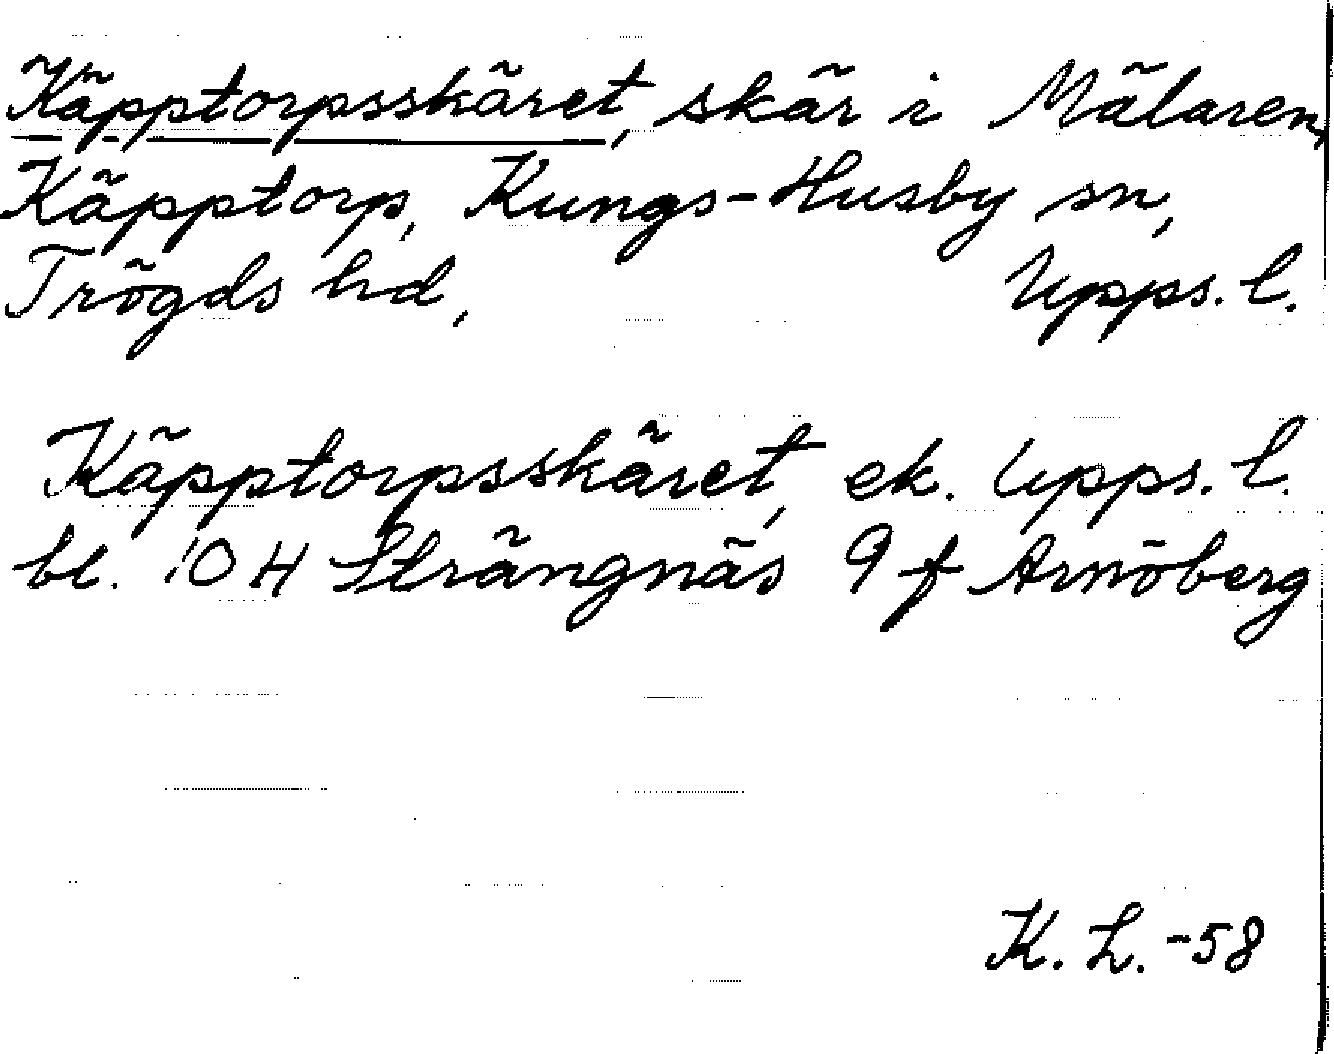 Käpptorpsskäret, skär i Mälaren,
Käpptorp, Kungs-Husby sn,
Trögds hd, Upps. l.
Käpptorpsskäret, ek. Upps. l.
bl. 10 H Strängnäs 9 f Arnöberg
K. L. -58